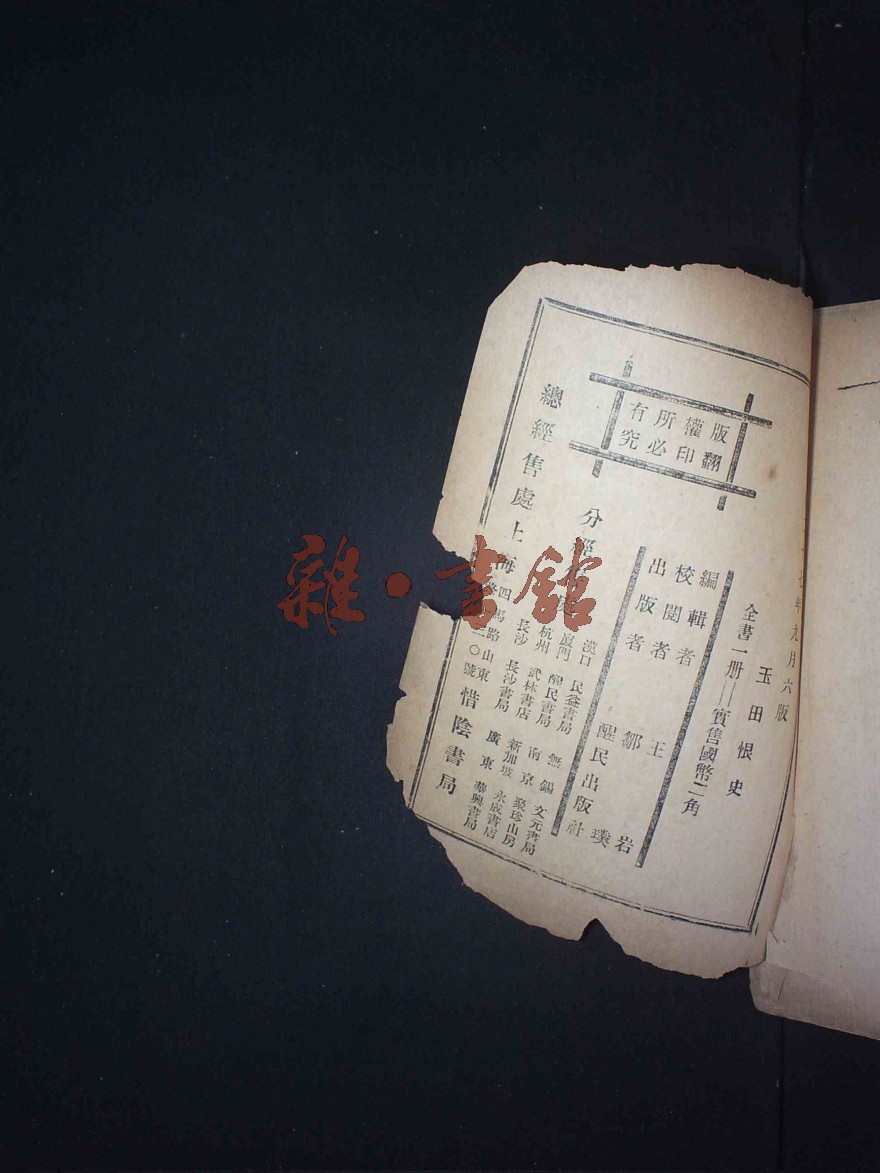 年九月六版
玉田恨史
全書一册——實售國幣二角
編輯者 王 岩
校閱者 鄒 璞
出版者 醒民出版社
版權所有
翻印必究
分經售處
漢口 民益書局 無錫 文元書局
廈門 醒民書局 南京 聚珍山房
杭州 武林書店 新加坡 永成書店
長沙 長沙書局 廣東 華興書局
總經售處上海四馬路山東路 〇號惜陰書局
雜·書舘